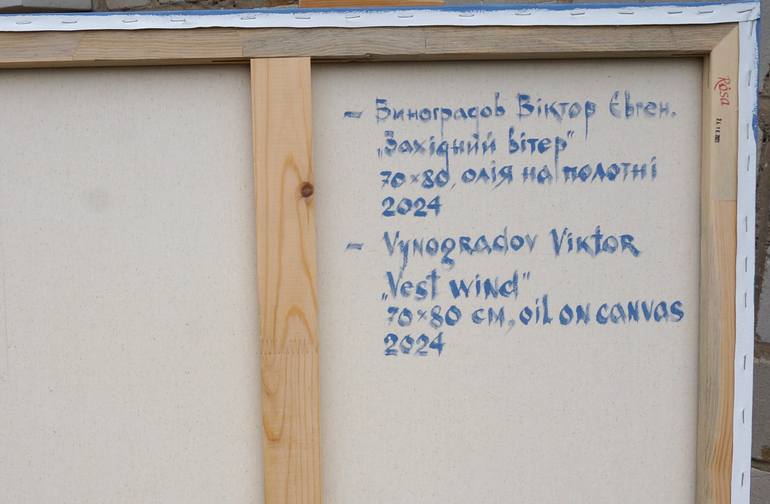 – Виноградов Віктор Євген.
„Західний вітер"
70×80, олія на полотні
2024
– Vynogradov Viktor
„Vest wind"
70×80 см, oil on canvas
2024
Rosa